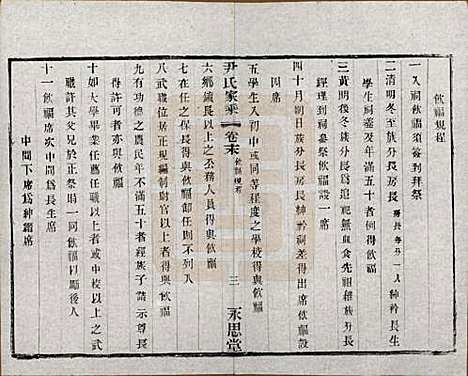 飲福規程
一入祠飲福須簽到拜祭
二清明冬至族分長房長房長每房一人紳衿長生
學生祠差及年滿五十者與飲福
三黃明後冬族分長追祀無與食先祖雜族分長
經理到祠參祭飲福設一席
四十月朔日族分長房長紳衿祠差得出席飲福設
四席
五學生入初中或同等程度之學校得與飲福
尹氏家乘
卷末
飲福規程
三
永思堂
六鄉鎮長以上公務人員得與飲福
七在任在職者得與飲福
八武職以正規編制尉官以上者得與飲福
九有功德之農民年不滿五十者經族子請示尊長
得許可者亦與飲福
十如大學畢業任薦任職以上者或中校以上之武
職許其父兄於正祭時一同飲福以啟後人
十一飲福席次中間長生席
中間下席爲紳縉席